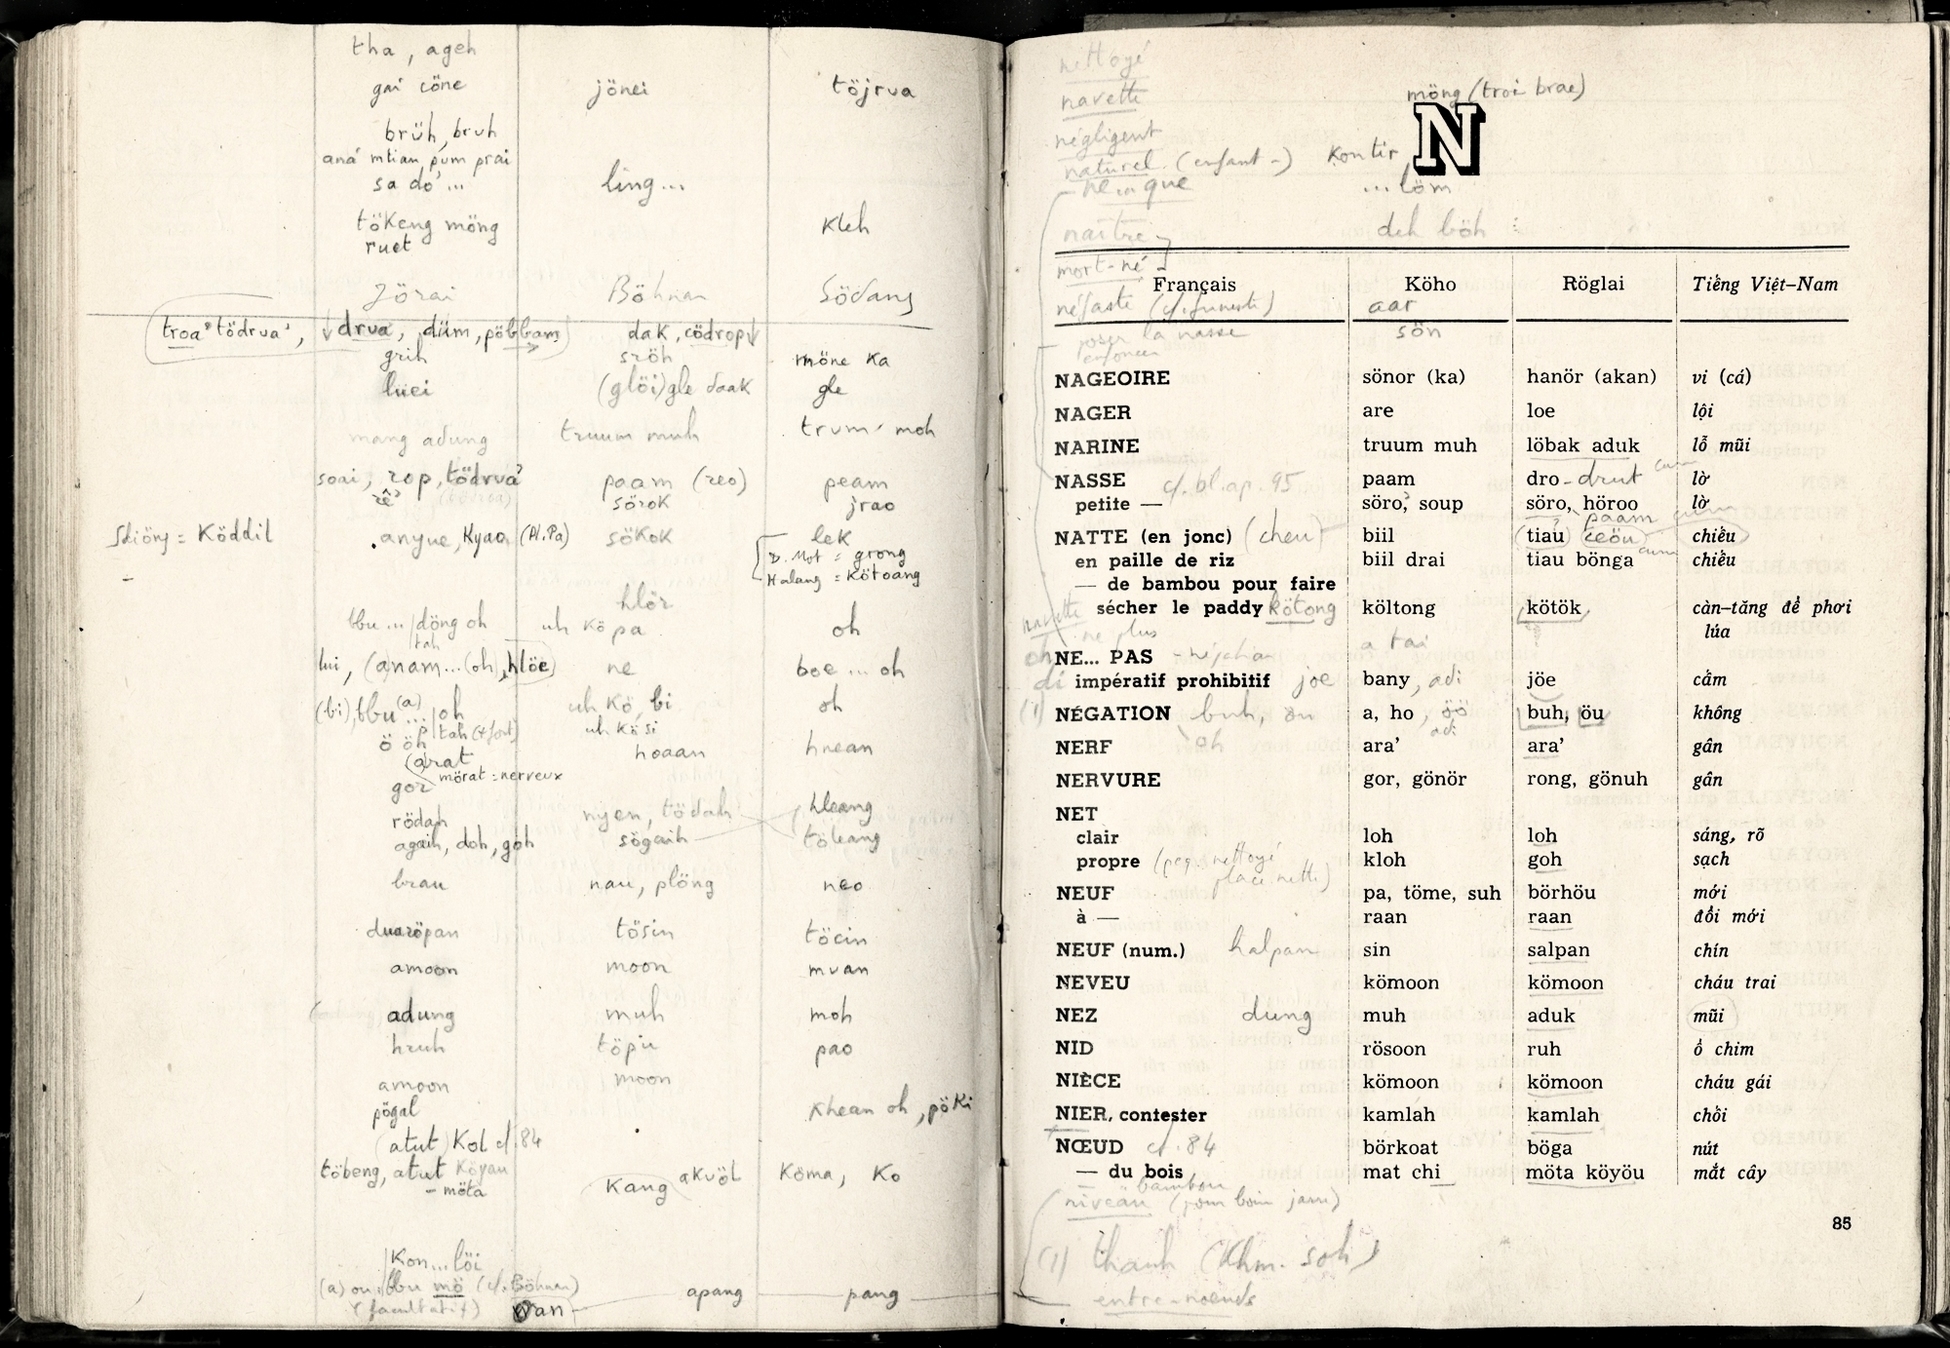 tha, ageh
gai cöne jönei töjrua
brüh, bruh
aná mtian, pum prai
sa dö... ling...
tökeng möng kleh
ruet
Jörai Böhnar Södang
troa tödrua', drua, düm, pöbbam dak, cödrop
grih sröh möne ka
luei (glöi) gle daak gle
mang adung truum muh trum moh
soai, rop, tödrua paam (reo) peam
rê sörok jrao
Stiöng = Köddil anyue, Kyao (Pl.Pa) sökok lek
D. Mot = grong
Halang = Kötoang
hlör
bbu ... döng oh uh köpa oh
tah
lui, (anam... (oh), hlöe) ne boe ... oh
(bi), bbu (a)... oh uh kö, bi oh
tah (+ fort) uh kö si
ö öh hoaan hnean
arat
mörat = nerveux
gor
rödah nyen, tödah hleang
agaih, doh, goh sögaih töleang
brau nau, plöng neo
duaröpan tösin töcin
amoon moon muan
adung muh moh
hruh töpu pao
amoon moon
pögal khean oh, pöki
(atut) Kol cf. 84
töbeng, atut köyau Kang akuöl Köma, Ko
- möta
Kon...löi
(a) ou bbu mö (cf. Böhnar)
(facultatif) wan apang pang
nettoyé
navette möng (troi brae)
N
négligent
naturel (enfant -) Kontir
ne... que ...löm
naître deh böh
mort-né
Français Köho Röglai Tiếng Việt-Nam
néfaste (cf. funeste) aar
poser la nasse sön
enfoncer
NAGEOIRE sönor (ka) hanör (akan) vi (cá)
NAGER are loe lội
NARINE truum muh löbak aduk lỗ mũi
NASSE cf. bl. ap. 95 paam dro - drut lờ
petite — söro, soup söro, höroo lờ
paam
NATTE (en jonc) (cheu) biil (tiau) ceöu chiếu
en paille de riz biil drai tiau bönga chiếu
— de bambou pour faire
sécher le paddy kötong költong kötök càn-tăng để phơi
lúa
navette
ne plus
NE... PAS a tai
impératif prohibitif joe bany, adi jöe cấm
(1) NÉGATION buh, öu a, ho, öö buh, öu không
adi
NERF oh ara’ ara’ gân
NERVURE gor, gönör rong, gönuh gân
NET
clair loh loh sáng, rõ
propre (p.ê. nettoyé kloh goh sạch
place nette)
NEUF pa, töme, suh börhöu mới
à — raan raan đồi mới
NEUF (num.) halpan sin salpan chín
NEVEU kömoon kömoon cháu trai
NEZ dung muh aduk mũi
NID rösoon ruh ổ chim
NIÈCE kömoon kömoon cháu gái
NIER, contester kamlah kamlah chối
NŒUD cf. 84 börkoat böga nút
— du bois mat chi möta köyöu mắt cây
— bambou
niveau
85
(1) thanh (Khm. soh)
entre-noeuds